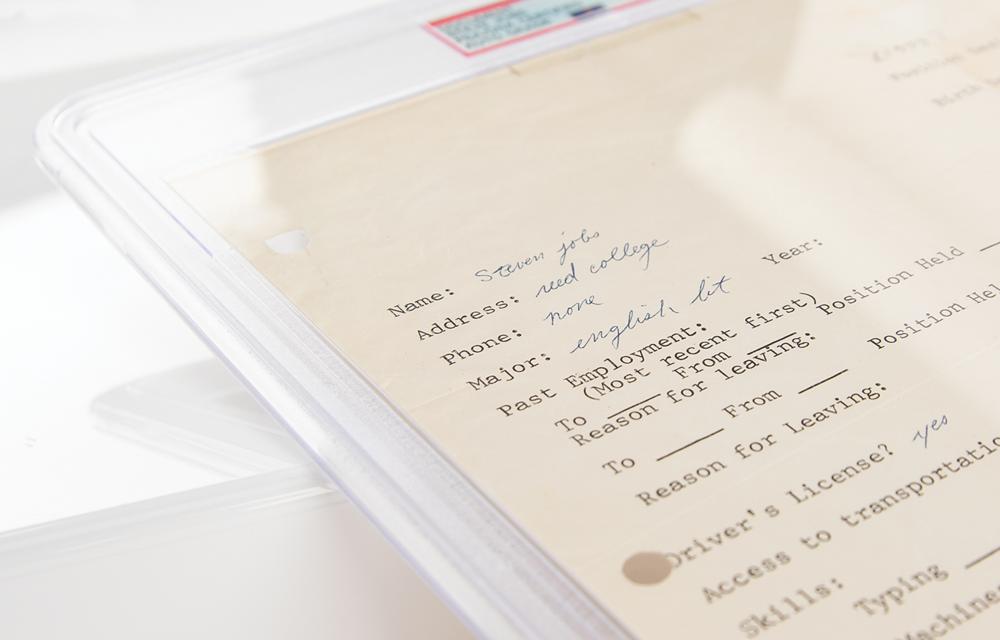 Name: Steven jobs
Address: reed college
Phone: none
Major: english lit Year:
Past Employment:
(Most recent first)
To From Position Held
Reason for leaving:
To From Position Hel
Reason for Leaving:
Driver's License? yes
Access to transportatio
Skills: Typing
Machines